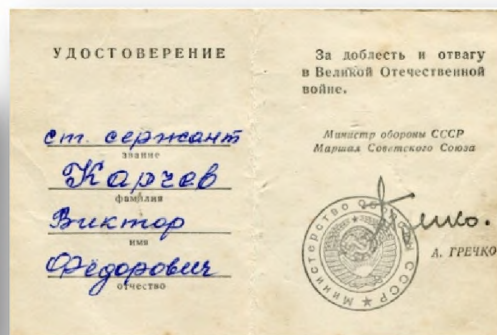 УДОСТОВЕРЕНИЕ
ст. сержант
звание
Карчев
фамилия
Виктор
имя
Фёдорович
отчество
За доблесть и отвагу
в Великой Отечественной
войне.
Министр обороны СССР
Маршал Советского Союза
А. ГРЕЧКО
Министерство СССР